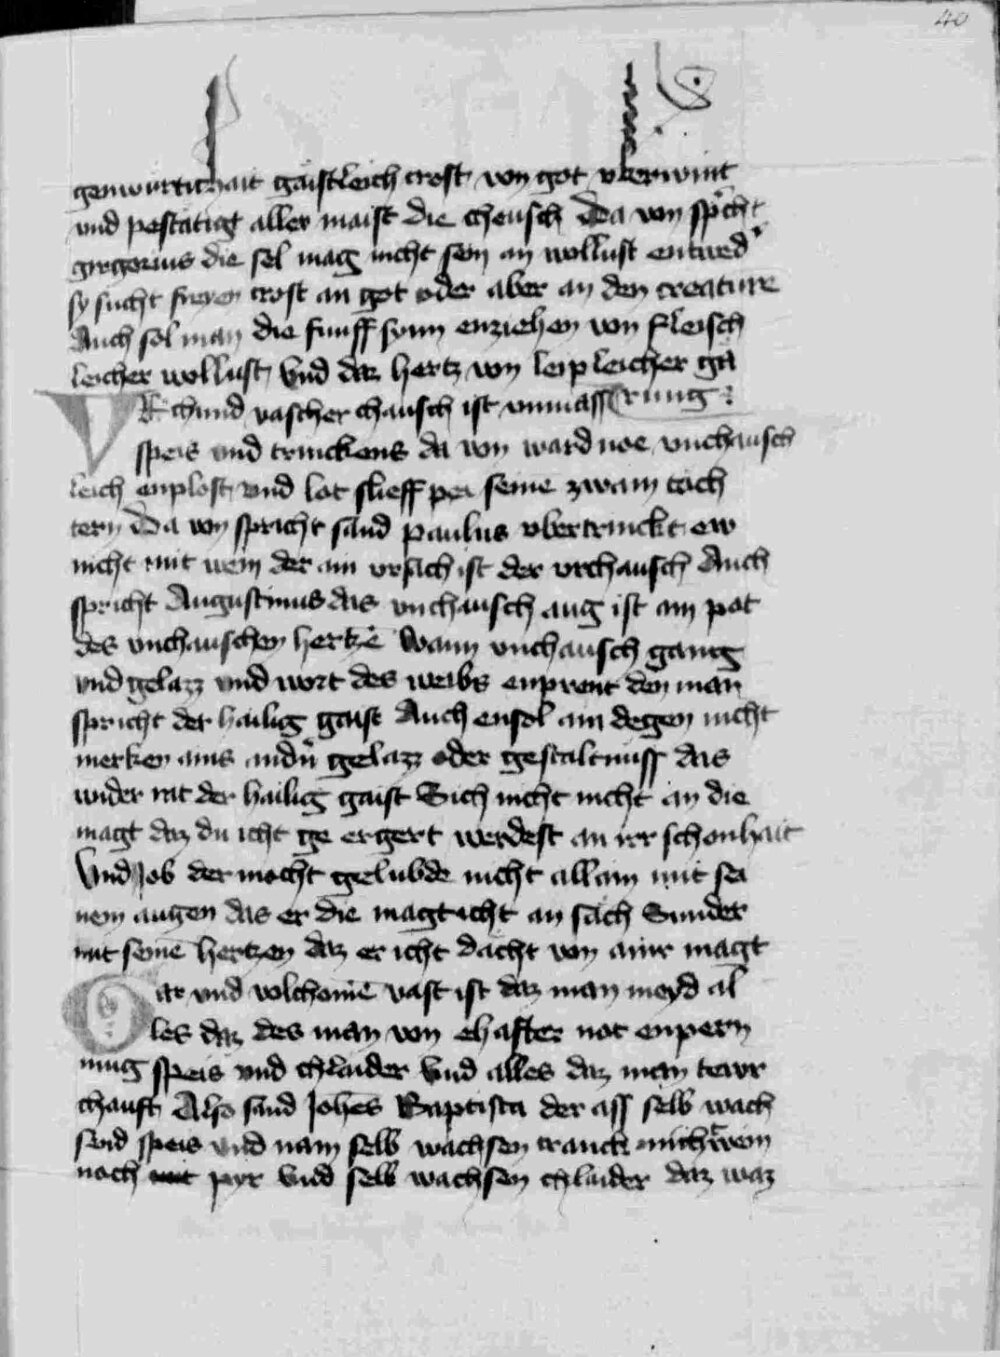 40
genwurtichait gaistleich trost von got vberwint
vnd pestatigt aller maist die cheusch Da von spricht
gregorius die sel mag nicht sein an wollust entwed'
sy sucht freyen trost an got oder aber an den creature
Auch sol man die funff synn enziehen von fleisch
leicher wollust Vnd daz hertz von leipleicher ga
Vrchund vascher chausch ist vnmass rung
speis vnd trinckens da von ward noe vnchausch
leich enplost vnd lot slieff pei seinē zwain toch
tern Da von spricht sand Paulus vbertrinckt ew
nicht mit wein der ain vrsach ist der vnchausch Auch
spricht Augustinus das vnchausch aug ist ain pot
des vnchauschen hertzē Wann vnchausch gancg
vnd gelazz vnd wort des weibs enprent den man
spricht der hailig gaist Auch ensol ain degen nicht
merken ains andn̄ gelazz oder gestaltnuss das
wider rat der hailig gaist Sich nicht nicht an die
magt daz du icht ge ergert werdest an irr schonhait
Vnd Job der macht gelubde nicht allain mit sei
nem augen das er die magt icht an sach Sunder
mit seinē hertzen daz er icht dacht von ainr magt
Gar vnd volchomē vast ist daz man meyd al
les daz des man von ehafter not enpern
mug speis vnd chlaider Vnd alles daz man tewr
chauft Also sand Johēs Baptista der ass selb wach
send speis vnd nam selb wachsen tranck nicht wein
noch pyr Vnd selb wachsen chlaider daz waz